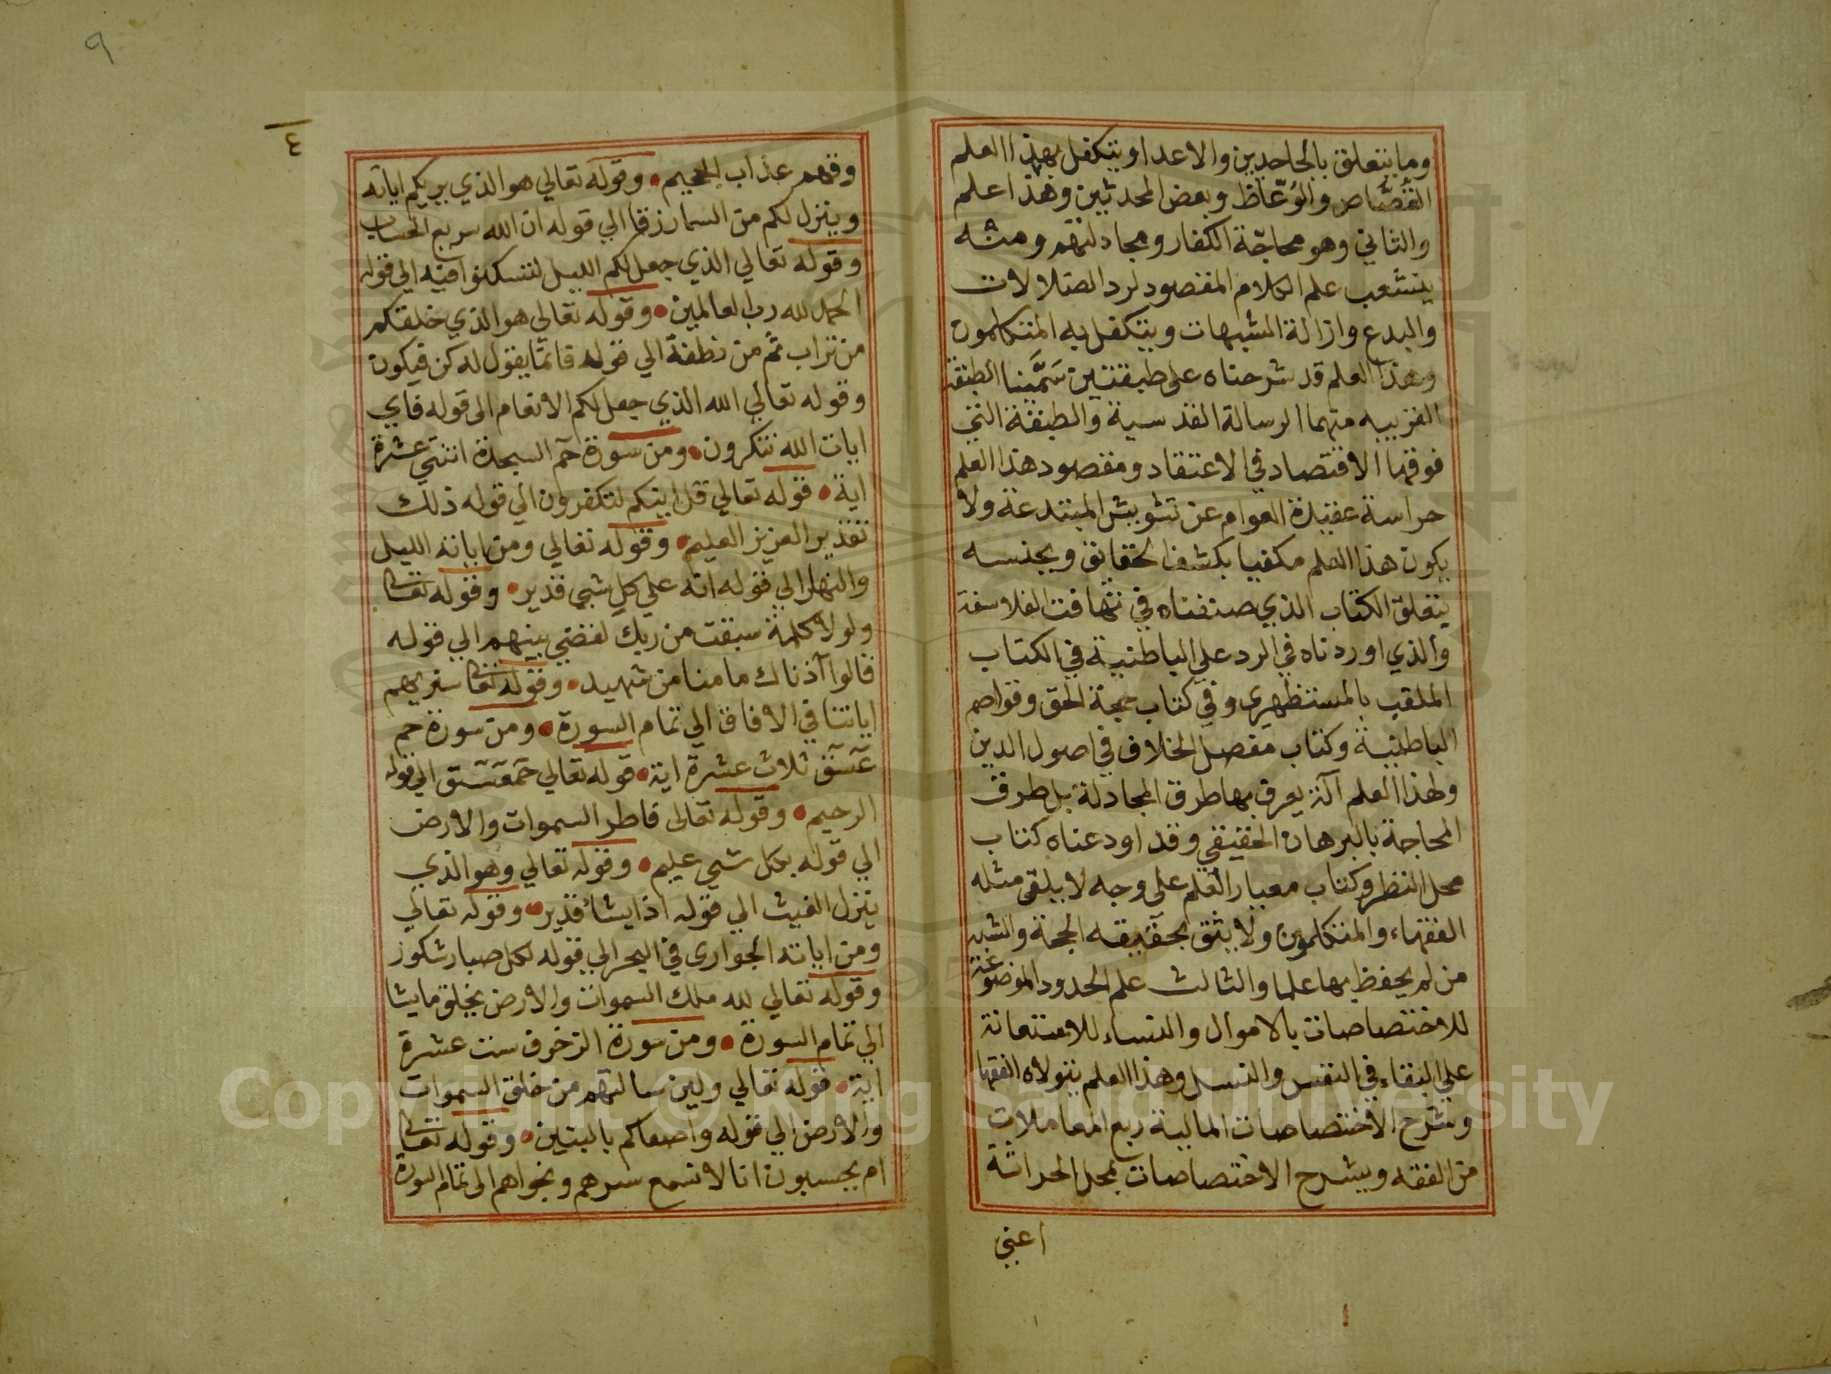 وما يتعلق بالجاحدين والاعدا ويتكفل بهذا العلم
القُصَّاص والوُعّاظ وبعض المحدثين وهذا علم
والثاني وهو محاجّة الكفار ومجادلتهم ومنه
يتشعب علم الكلام المقصود لرد الضلالات
والبدع وازالة الشبهات ويتكفل به المتكلمون
وهذا العلم قد شرحناه على طبقتين سَمَّينا الطبقة
القريبه منهما الرسالة القدسية والطبقة التي
فوقها الاقتصاد في الاعتقاد ومقصود هذا العلم
حراسة عقيدة العوام عن تشويش المبتدعة ولا
يكون هذا العلم مكفيا بكشف الحقايق وبجنسه
يتعلق الكتاب الذي صنفناه في تهافت الفلاسفة
والذي اوردناه في الرد على الباطنية في الكتاب
الملقب بالمستظهري وفي كتاب حجة الحق وقواصم
الباطنية وكتاب مفصل الخلاف في اصول الدين
ولهذا العلم آلة يعرف بها طرق المجادلة بل طرق
المحاجة بالبرهان الحقيقي وقد اودعناه كتاب
محل النظر وكتاب معيار العلم على وجه لا يلقى مثله
الفقهاء والمتكلمون ولا يثق بحقيقه الحجة والشبه
من لم يحفظ بها علما والثالث علم الحدود الموضوعة
للاختصاصات بالاموال والنساء للاستعانة
على البقاء في النفس والنسل وهذا العلم يتولاه الفقها
وشرح الاختصاصات المالية ربع المعاملات
من الفقه ويشرح الاختصاصات بمحل الحراثة
اعني
٩
٤
وقهم عذاب الجحيم وقوله تعالي هو الذي يريكم اياته
وينزل لكم من السما رزقا الي قوله ان الله سريع الحساب
وقوله تعالي الذي جعل لكم الليل لتسكنوا فيه الي قوله
الحمد لله رب العالمين وقوله تعالي هو الذي خلقكم
من تراب ثم من نطفة الي قوله فانما يقول له كن فيكون
وقوله تعالي الله الذي جعل لكم الانعام الى قوله فاي
ايات الله تنكرون ومن سورة حم السجدة اثنتي عشرة
اية قوله تعالي قل اينكم لتكفرون الي قوله ذلك
تقدير العزيز العليم وقوله تعالي ومن اياته الليل
والنهار الي قوله انه على كل شي قدير وقوله تعالى
ولولا كلمة سبقت من ربك لقضي بينهم الي قوله
قالوا آذناك ما منا من شهيد وقوله تعالى سنريهم
اياتنا في الافاق الي تمام السورة ومن سورة حم
عسق ثلاث عشرة اية قوله تعالي حمعسق الي قوله
الرحيم وقوله تعالى فاطر السموات والارض
الي قوله بكل شي عليم وقوله تعالي وهو الذي
ينزل الغيث الي قوله اذا يشاء قدير وقوله تعالي
ومن اياته الجوارى في البحر الي قوله لكل صبار شكور
وقوله تعالي لله ملك السموات والارض يخلق ما يشا
الي تمام السورة ومن سورة الزخرف ست عشرة
اية قوله تعالي ولين سالتهم من خلق السموات
والارض الي قوله واصفاكم بالبنين وقوله تعالى
ام يحسبون انا لا نسمع سرهم ونجواهم الى تمام السورة
Copyright © King Saud University